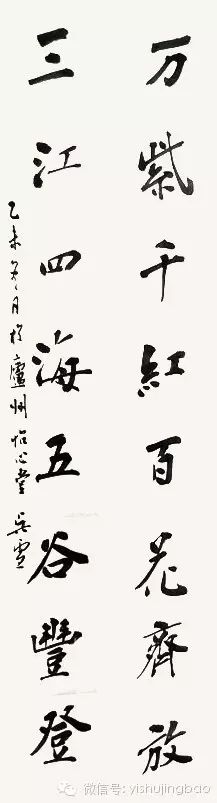 万紫千紅百花齊放
三江四海五谷豐登
乙未冬月於廬州怡心堂 吳雪
微信号: yishujingbao